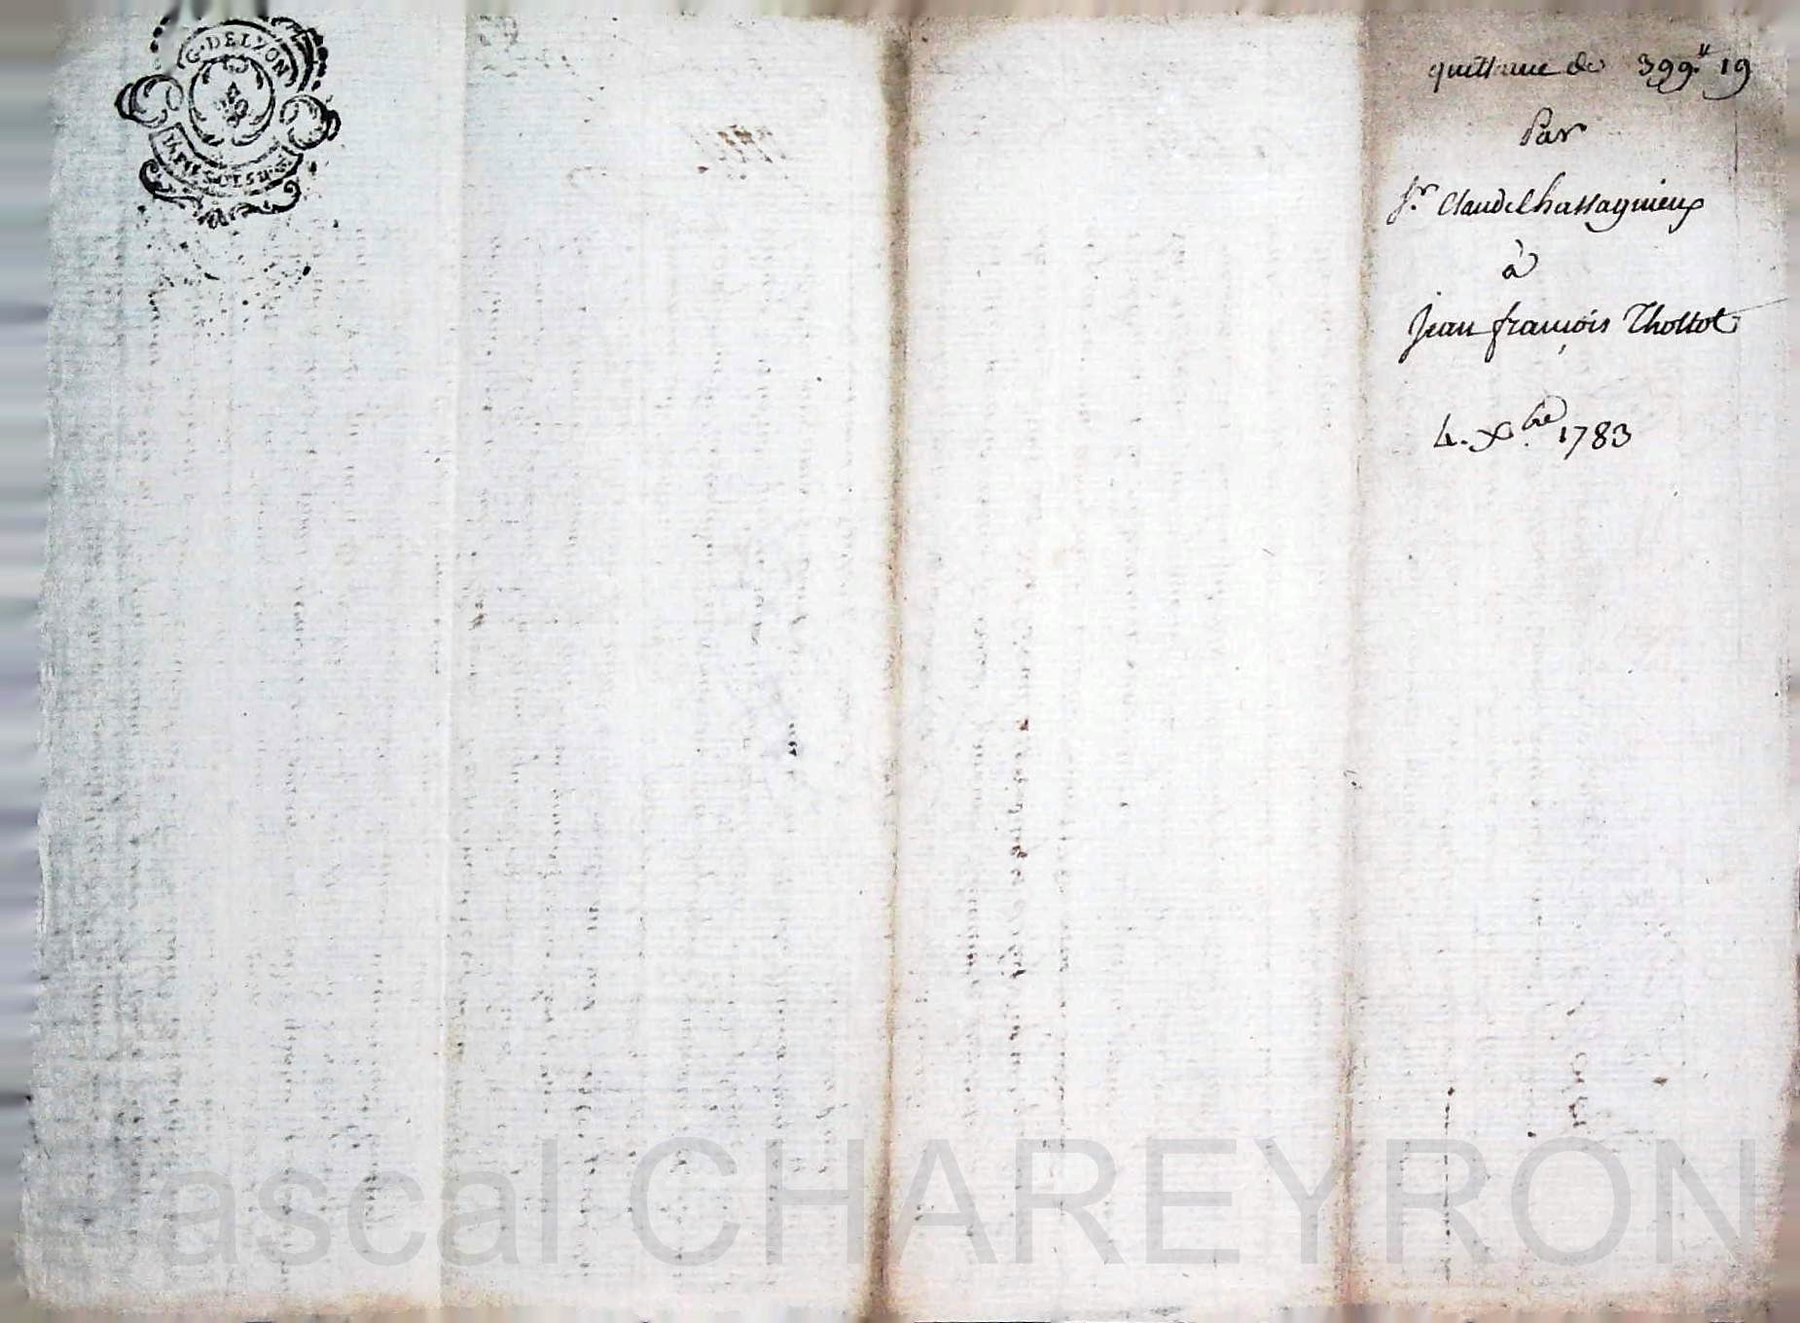 G. DE LYON
quittance de 399.tt 19
Par
Sr. Claude Chassagnieux
à
Jean françois Thollot
4. Xbre 1783
ascal CHAREYRON